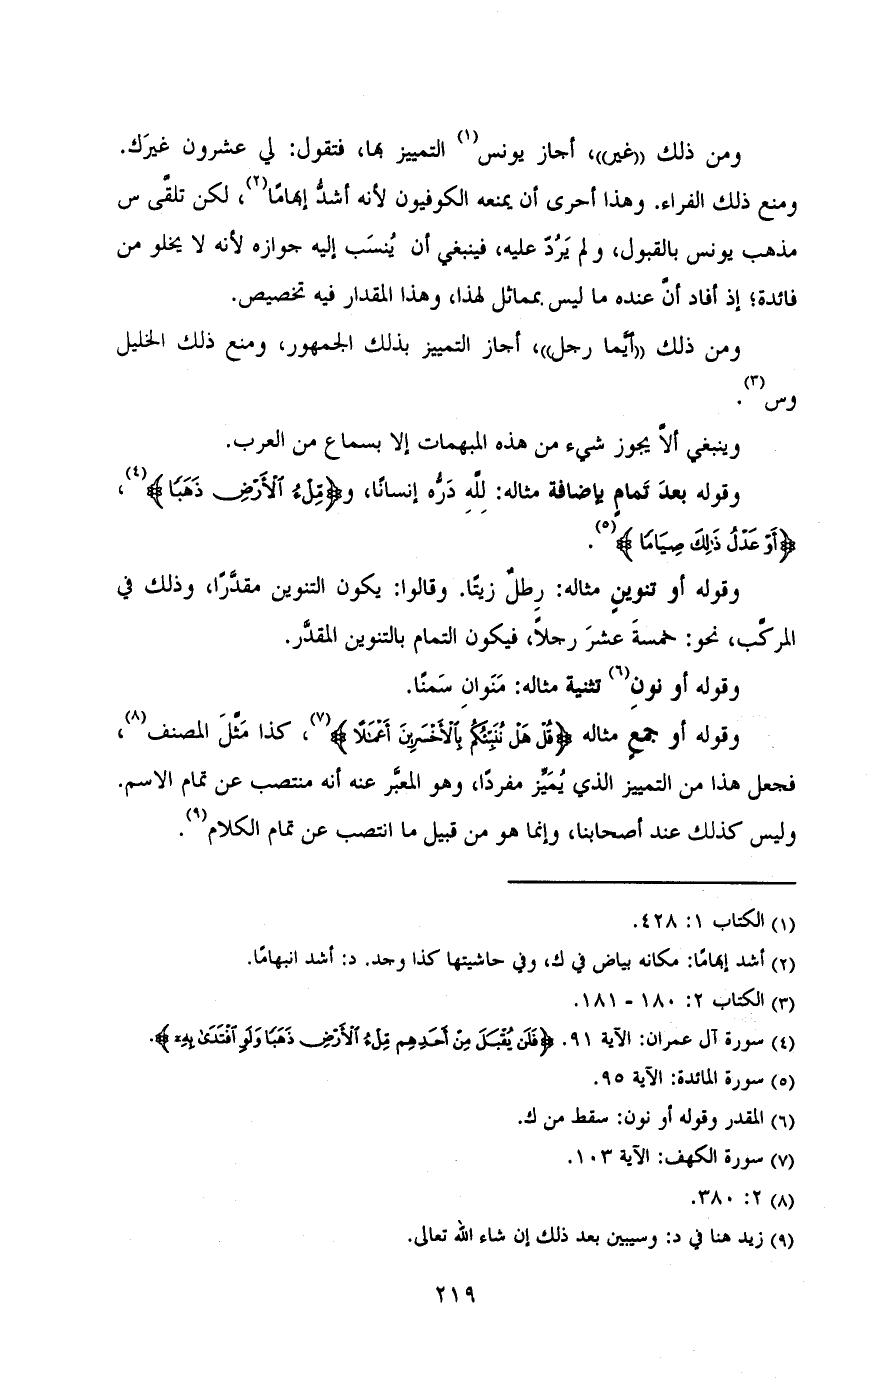 ومن ذلك ((غير))، أجاز يونس(١) التمييز بها، فتقول: لي عشرون غيرَك.
ومنع ذلك الفراء. وهذا أحرى أن يمنعه الكوفيون لأنه أشدُّ إبهامًا(٢)، لكن تلقَّى س
مذهب يونس بالقبول، ولم يَرُدّ عليه، فينبغي أن يُنسَب إليه جوازه لأنه لا يخلو من
فائدة؛ إذ أفاد أنَّ عنده ما ليس بمماثل لهذا، وهذا المقدار فيه تخصيص.
ومن ذلك ((أَيَّما رجل))، أجاز التمييز بذلك الجمهور، ومنع ذلك الخليل
وس(٣).
وينبغي ألاَّ يجوز شيء من هذه المبهمات إلا بسماع من العرب.
وقوله بعدَ تَمامٍ بإضافة مثاله: للَّهِ دَرُّه إنسانًا، و﴿مِّلْءُ ٱلْأَرْضِ ذَهَبًا﴾(٤)،
﴿أَوْ عَدْلُ ذَٰلِكَ صِيَامًا﴾(٥).
وقوله أو تنوينٍ مثاله: رِطلٌ زيتًا. وقالوا: يكون التنوين مقدَّرًا، وذلك في
المركَّب، نحو: خمسةَ عشرَ رجلاً، فيكون التمام بالتنوين المقدَّر.
وقوله أو نونِ(٦) تثنية مثاله: مَنَوانِ سَمنًا.
وقوله أو جمعٍ مثاله ﴿قُلْ هَلْ نُنَبِّئُكُم بِٱلْأَخْسَرِينَ أَعْمَٰلًا﴾(٧)، كذا مَثَّلَ المصنف(٨)،
فجعل هذا من التمييز الذي يُمَيِّز مفردًا، وهو المعبَّر عنه أنه منتصب عن تمام الاسم.
وليس كذلك عند أصحابنا، وإنما هو من قبيل ما انتصب عن تمام الكلام(٩).
(١) الكتاب ١: ٤٢٨.
(٢) أشد إبهامًا: مكانه بياض في ك، وفي حاشيتها كذا وجد. د: أشد انبهامًا.
(٣) الكتاب ٢: ١٨٠ - ١٨١.
(٤) سورة آل عمران: الآية ٩١. ﴿فَلَن يُقْبَلَ مِنْ أَحَدِهِم مِّلْءُ ٱلْأَرْضِ ذَهَبًا وَلَوِ ٱفْتَدَىٰ بِهِۦ﴾.
(٥) سورة المائدة: الآية ٩٥.
(٦) المقدر وقوله أو نون: سقط من ك.
(٧) سورة الكهف: الآية ١٠٣.
(٨) ٢: ٣٨٠.
(٩) زيد هنا في د: وسيبين بعد ذلك إن شاء الله تعالى.
٢١٩